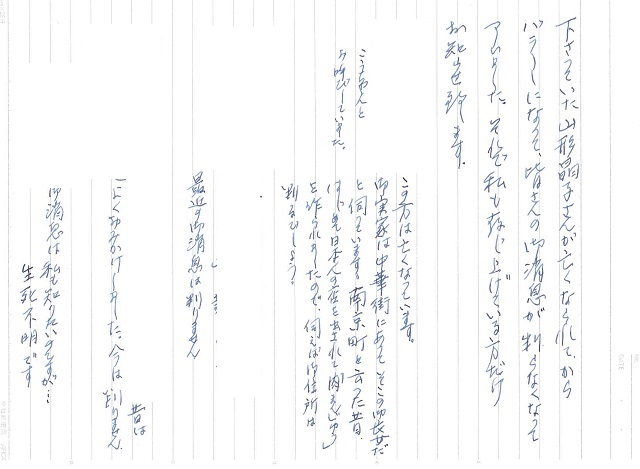 下さっていた山形晶子さんが亡くなられて、から
バラバラになって、皆さんの御消息が判らなくなって
了いました。それで私も存じ上げている方だけ
お知らせ致します。
とお呼びしていました。
この方は亡くなっています。
御実家は中華街にあって、そこの御長女だ
と伺っています。南京町と云った昔、
はじめて日本人の店を出されて肉まんじゅう
を作られましたので、伺えば御住所は
判るでしょう。
最近の御消息は判りません
よくおみかけしました。今は判りません
昔は
御消息は私も知りたいのですが…
生死不明です